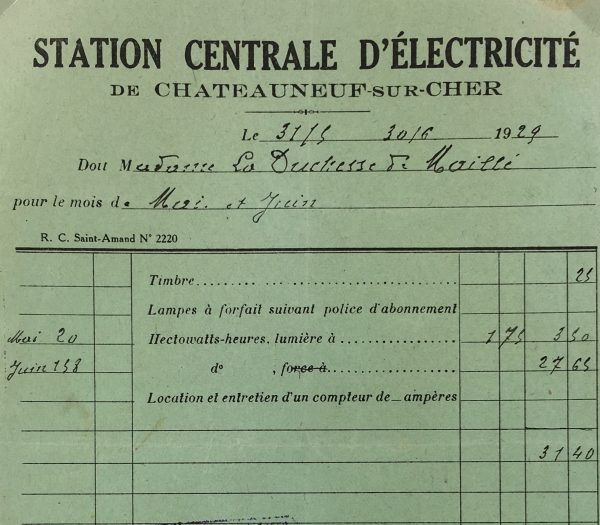 STATION CENTRALE D'ÉLECTRICITÉ
DE CHATEAUNEUF-SUR-CHER
Le 31/5 30/6 1929
Doit Madame La Duchesse de Maillé
pour le mois de Mai et Juin
R. C. Saint-Amand N° 2220
Timbre 25
Lampes à forfait suivant police d'abonnement
Mai 20 Hectowatts-heures, lumière à 175 3 50
Juin 158 d° , force à 27 65
Location et entretien d'un compteur de ampères
31 40